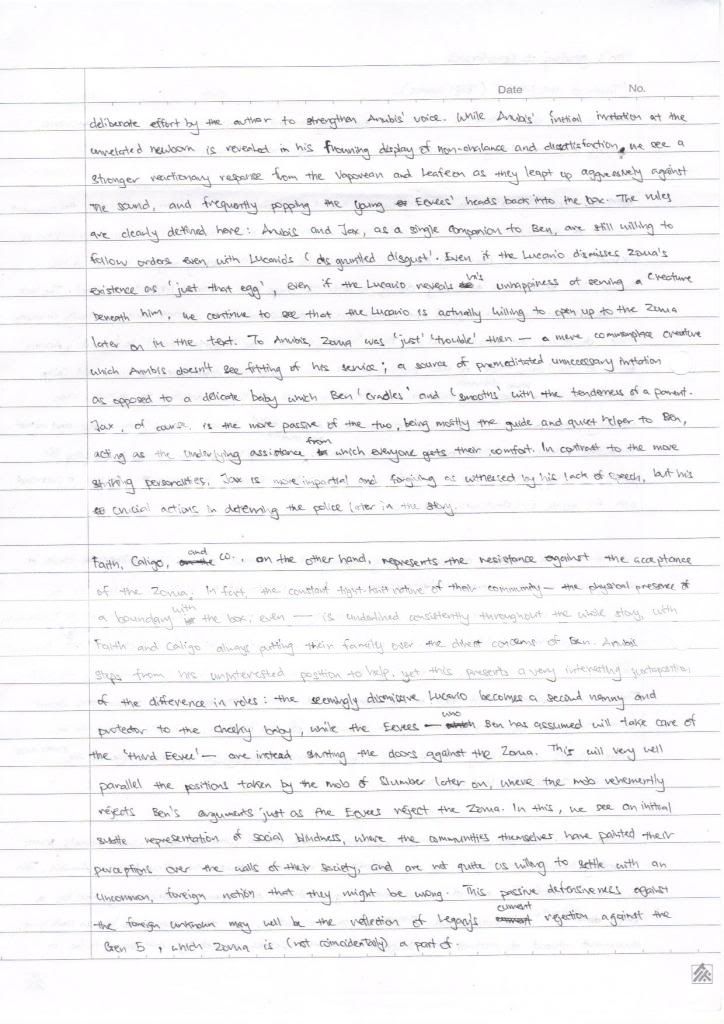 Date No.
deliberate effort by the author to strengthen Anubis' voice. While Anubis' initial irritation at the
unrelated newborn is revealed in his frowning display of non-chalance and dissatisfaction, we see a
stronger reactionary response from the Vaporeon and Leafeon as they leapt up aggressively against
the sound, and frequently popping the young Eevees' heads back into the box. The rules
are clearly defined here: Anubis and Jax, as a single companion to Ben, are still willing to
follow orders even with Lucario's 'disgruntled disgust'. Even if the Lucario dismisses Zorua's
existence as 'just that egg', even if the Lucario reveals his unhappiness of serving a creature
beneath him, we continue to see that the Lucario is actually willing to open up to the Zorua
later on in the text. To Anubis, Zorua was 'just' 'trouble' then — a mere commonplace creature
which Anubis doesn't see fitting of his service; a source of premeditated unnecessary irritation
as opposed to a delicate baby which Ben 'cradles' and 'smooths' with the tenderness of a parent.
Jax, of course, is the more passive of the two, being mostly the guide and quiet helper to Ben,
acting as the underlying assistance from which everyone gets their comfort. In contrast to the more
striking personalities, Jax is more impartial and forgiving as witnessed by his lack of speech, but his
crucial actions in deterring the police later in the story.
Faith, Caligo, and co., on the other hand, represents the resistance against the acceptance
of the Zorua. In fact, the constant tight-knit nature of their community — the physical presence of
a boundary with the box, even — is underlined consistently throughout the whole story, with
Faith and Caligo always putting their family over the direct concerns of Ben. Anubis
steps from his uninterested position to help, yet this presents a very interesting juxtaposition
of the difference in roles: the seemingly dismissive Lucario becomes a second nanny and
protector to the cheeky baby, while the Eevees — who Ben has assumed will take care of
the 'third Eevee' — are instead shutting the doors against the Zorua. This will very well
parallel the positions taken by the mob of Slumber later on, where the mob vehemently
rejects Ben's arguments just as the Eevees reject the Zorua. In this, we see an initial
subtle representation of social blindness, where the communities themselves have painted their
perceptions over the walls of their society, and are not quite as willing to settle with an
uncommon, foreign notion that they might be wrong. This passive defensiveness against
the foreign unknown may well be the reflection of Legacy's current rejection against the
Gen 5, which Zorua is (not coincidentally) a part of.